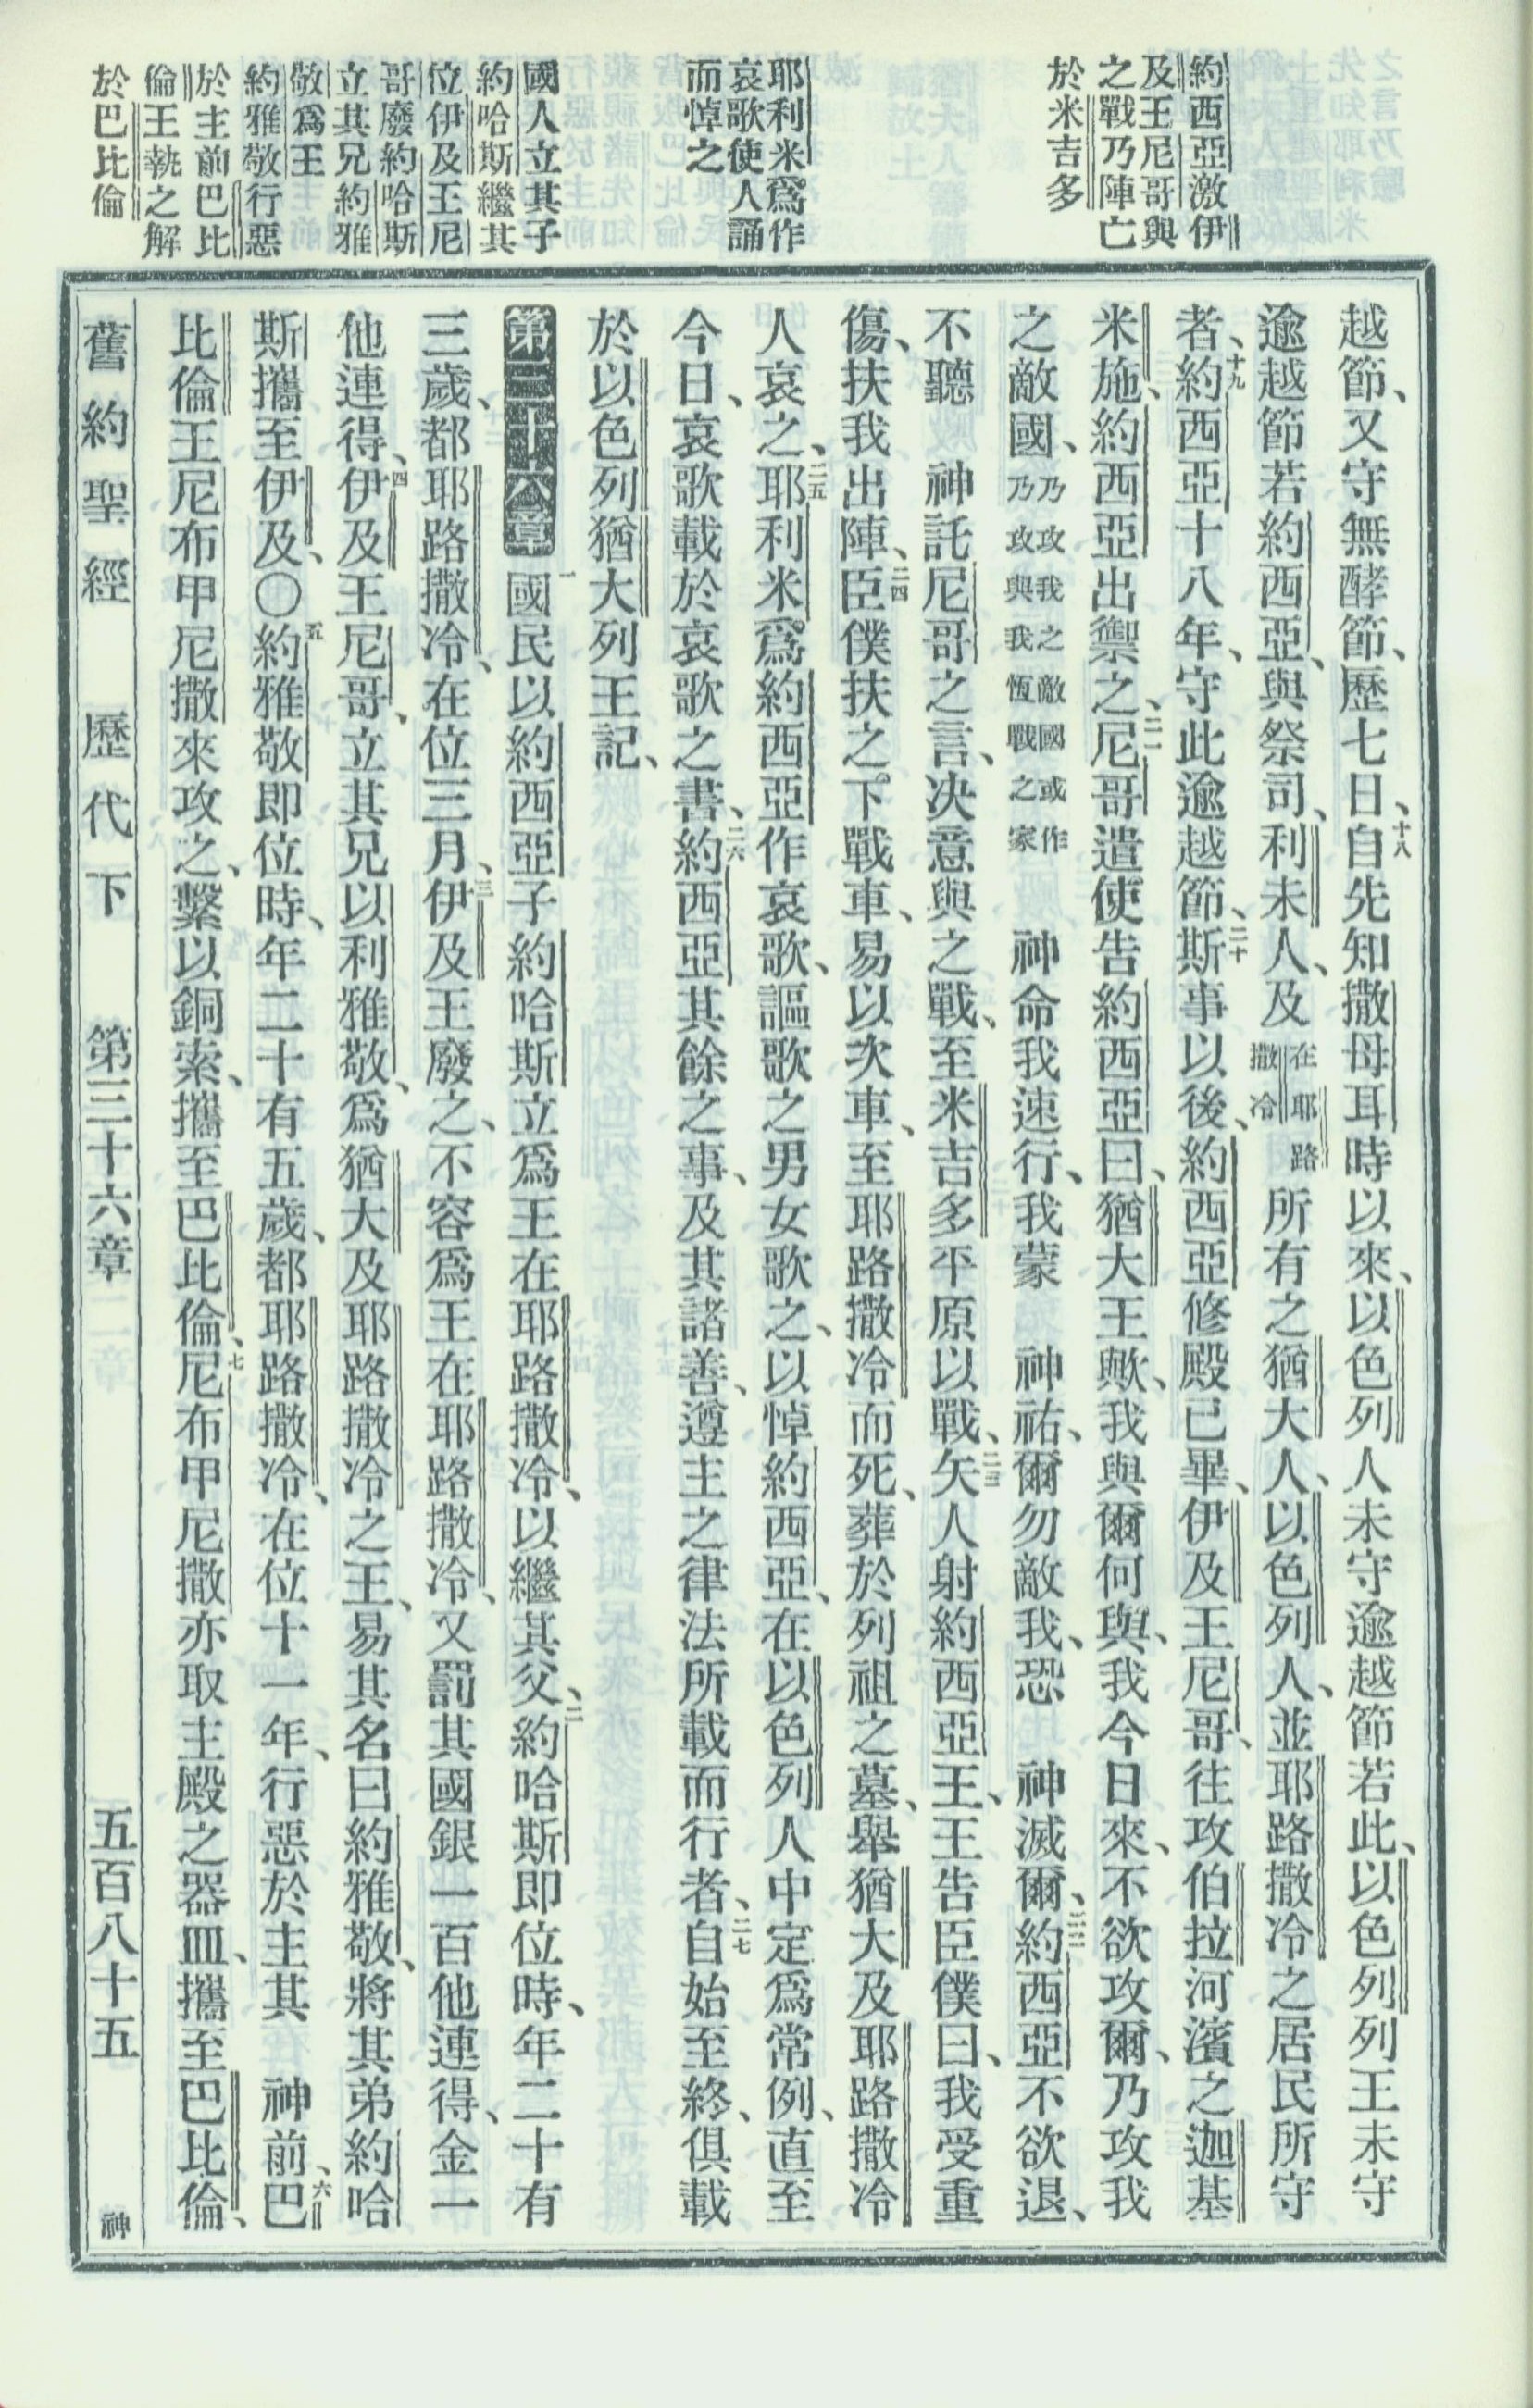 約西亞激伊
及王尼哥與
之戰乃陣亡
於米吉多
耶利米爲作
哀歌使人誦
而悼之
國人立其子
約哈斯繼其
位伊及王尼
哥廢約哈斯
立其兄約雅
敬爲王
約雅敬行惡
於主前巴比
倫王執之解
於巴比倫
越節、又守無酵節、歷七日、十八自先知撒母耳時以來、以色列人未守逾越節若此、以色列列王未守
逾越節若約西亞、與祭司、利未人、及在耶路撒冷所有之猶大人、以色列人、並耶路撒冷之居民所守
者、十九約西亞十八年、守此逾越節、二十斯事以後、約西亞修殿已畢、伊及王尼哥、往攻伯拉河濱之迦基
米施、約西亞出禦之、二一尼哥遣使告約西亞曰、猶大王歟、我與爾何與、我今日來、不欲攻爾、乃攻我
之敵國、乃攻我之敵國或作乃攻與我恆戰之家　神命我速行、我蒙　神祐、爾勿敵我、恐　神滅爾、二二約西亞不欲退、
不聽　神託尼哥之言、決意與之戰、至米吉多平原以戰、二三矢人射約西亞王、王告臣僕曰、我受重
傷、扶我出陣、二四臣僕扶之下戰車、易以次車、至耶路撒冷而死、葬於列祖之墓、舉猶大及耶路撒冷
人哀之、二五耶利米爲約西亞作哀歌、謳歌之男女歌之、以悼約西亞、在以色列人中定爲常例、直至
今日、哀歌載於哀歌之書、二六約西亞其餘之事、及其諸善、遵主之律法所載而行者、二七自始至終、俱載
於以色列猶大列王記、
第三十六章　一國民以約西亞子約哈斯立爲王在耶路撒冷、以繼其父、二約哈斯即位時、年二十有
三歲、都耶路撒冷、在位三月、三伊及王廢之、不容爲王在耶路撒冷、又罰其國銀一百他連得、金一
他連得、四伊及王尼哥、立其兄以利雅敬、爲猶大及耶路撒冷之王、易其名曰約雅敬、將其弟約哈
斯攜至伊及、○五約雅敬即位時、年二十有五歲、都耶路撒冷、在位十一年、行惡於主其　神前、六巴
比倫王尼布甲尼撒來攻之、繫以銅索、攜至巴比倫、七尼布甲尼撒亦取主殿之器皿、攜至巴比倫、
舊約聖經　歷代下　第三十六章　五百八十五　神